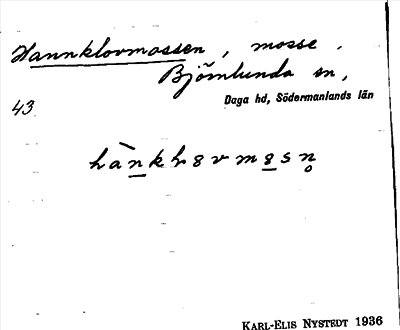 Hannklovmossen, mosse.
Björnlunda sn,
Daga hd, Södermanlands län
43.
KARL-ELIS NYSTEDT 1936